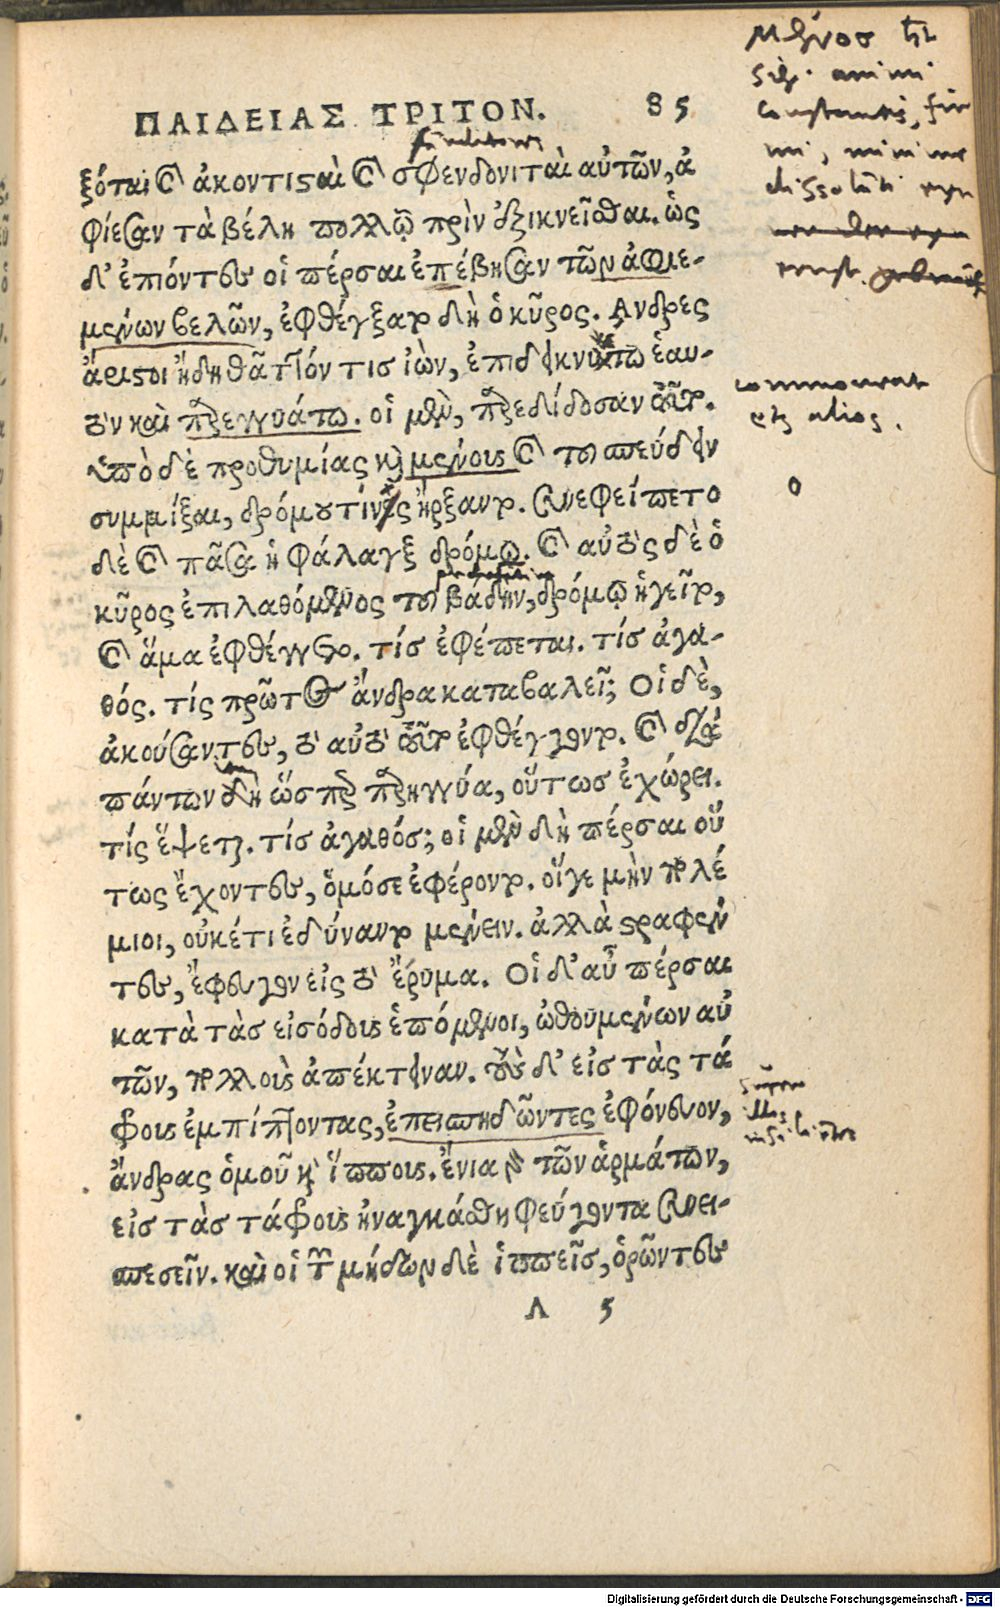 ΠΑΙΔΕΙΑΣ ΤΡΙΤΟΝ. 85
ξόται καὶ ἀκοντισταὶ καὶ σφενδονιταὶ αὐτῶν, ἀ
φίεσαν τὰ βέλη πολλῷ πρὶν ἐξικνεῖσθαι. ὡς
δ' ἐπιόντες οἱ πέρσαι ἐπέβησαν τῶν ἀφιε-
μένων βελῶν, ἐφθέγξατο δὴ ὁ κῦρος. Ανδρες
ἄριστοι ἤδη θᾶττόν τις ἰὼν, ἐπιδεικνύτω ἑαυ-
τὸν καὶ παρεγγυάτω. οἱ μὲν, παρεδίδοσαν τοῦτο.
ὑπὸ δὲ προθυμίας καὶ μένους καὶ τοῦ σπεύδειν
συμμίξαι, δρόμου τινὲς ἤρξαντο. συνεφείπετο
δὲ καὶ πᾶσα ἡ φάλαγξ δρόμῳ. καὶ αὐτὸς δὲ ὁ
κῦρος ἐπιλαθόμενος τοῦ βάδην, δρόμῳ ἡγεῖτο,
καὶ ἅμα ἐφθέγγετο. τίς ἐφέπεται. τίς ἀγα-
θός. τίς πρῶτος ἄνδρα καταβαλεῖ; Οἱ δὲ,
ἀκούσαντες, τὸ αὐτὸ τοῦτο ἐφθέγγοντο. καὶ διὰ
πάντων δὴ ὥσπερ παρηγγύα, οὕτως ἐχώρει.
τίς ἕψεται. τίς ἀγαθός; οἱ μὲν δὴ πέρσαι οὕ
τως ἔχοντες, ὁμόσε ἐφέροντο. οἵγε μὴν πολέ
μιοι, οὐκέτι ἐδύναντο μένειν. ἀλλὰ στραφέν
τες, ἔφευγον εἰς τὸ ἔρυμα. Οἱ δ' αὖ πέρσαι
κατὰ τὰς εἰσόδους ἑπόμενοι, ὠθουμένων αὐ
τῶν, πολλοὺς ἀπέκτειναν. τοὺς δ' εἰς τὰς τά
φρους ἐμπίπτοντας, ἐπεισπηδῶντες ἐφόνευον,
ἄνδρας ὁμοῦ καὶ ἵππους. ἔνια γὰρ τῶν ἁρμάτων,
εἰς τὰς τάφρους ἠναγκάσθη φεύγοντα συνει-
σπεσεῖν. καὶ οἱ τῶν μήδων δὲ ἱππεῖς, ὁρῶντες
Λ 5
μένος
animi
constantis, fir
mi, minime
dissoluti
commoneat
alios.